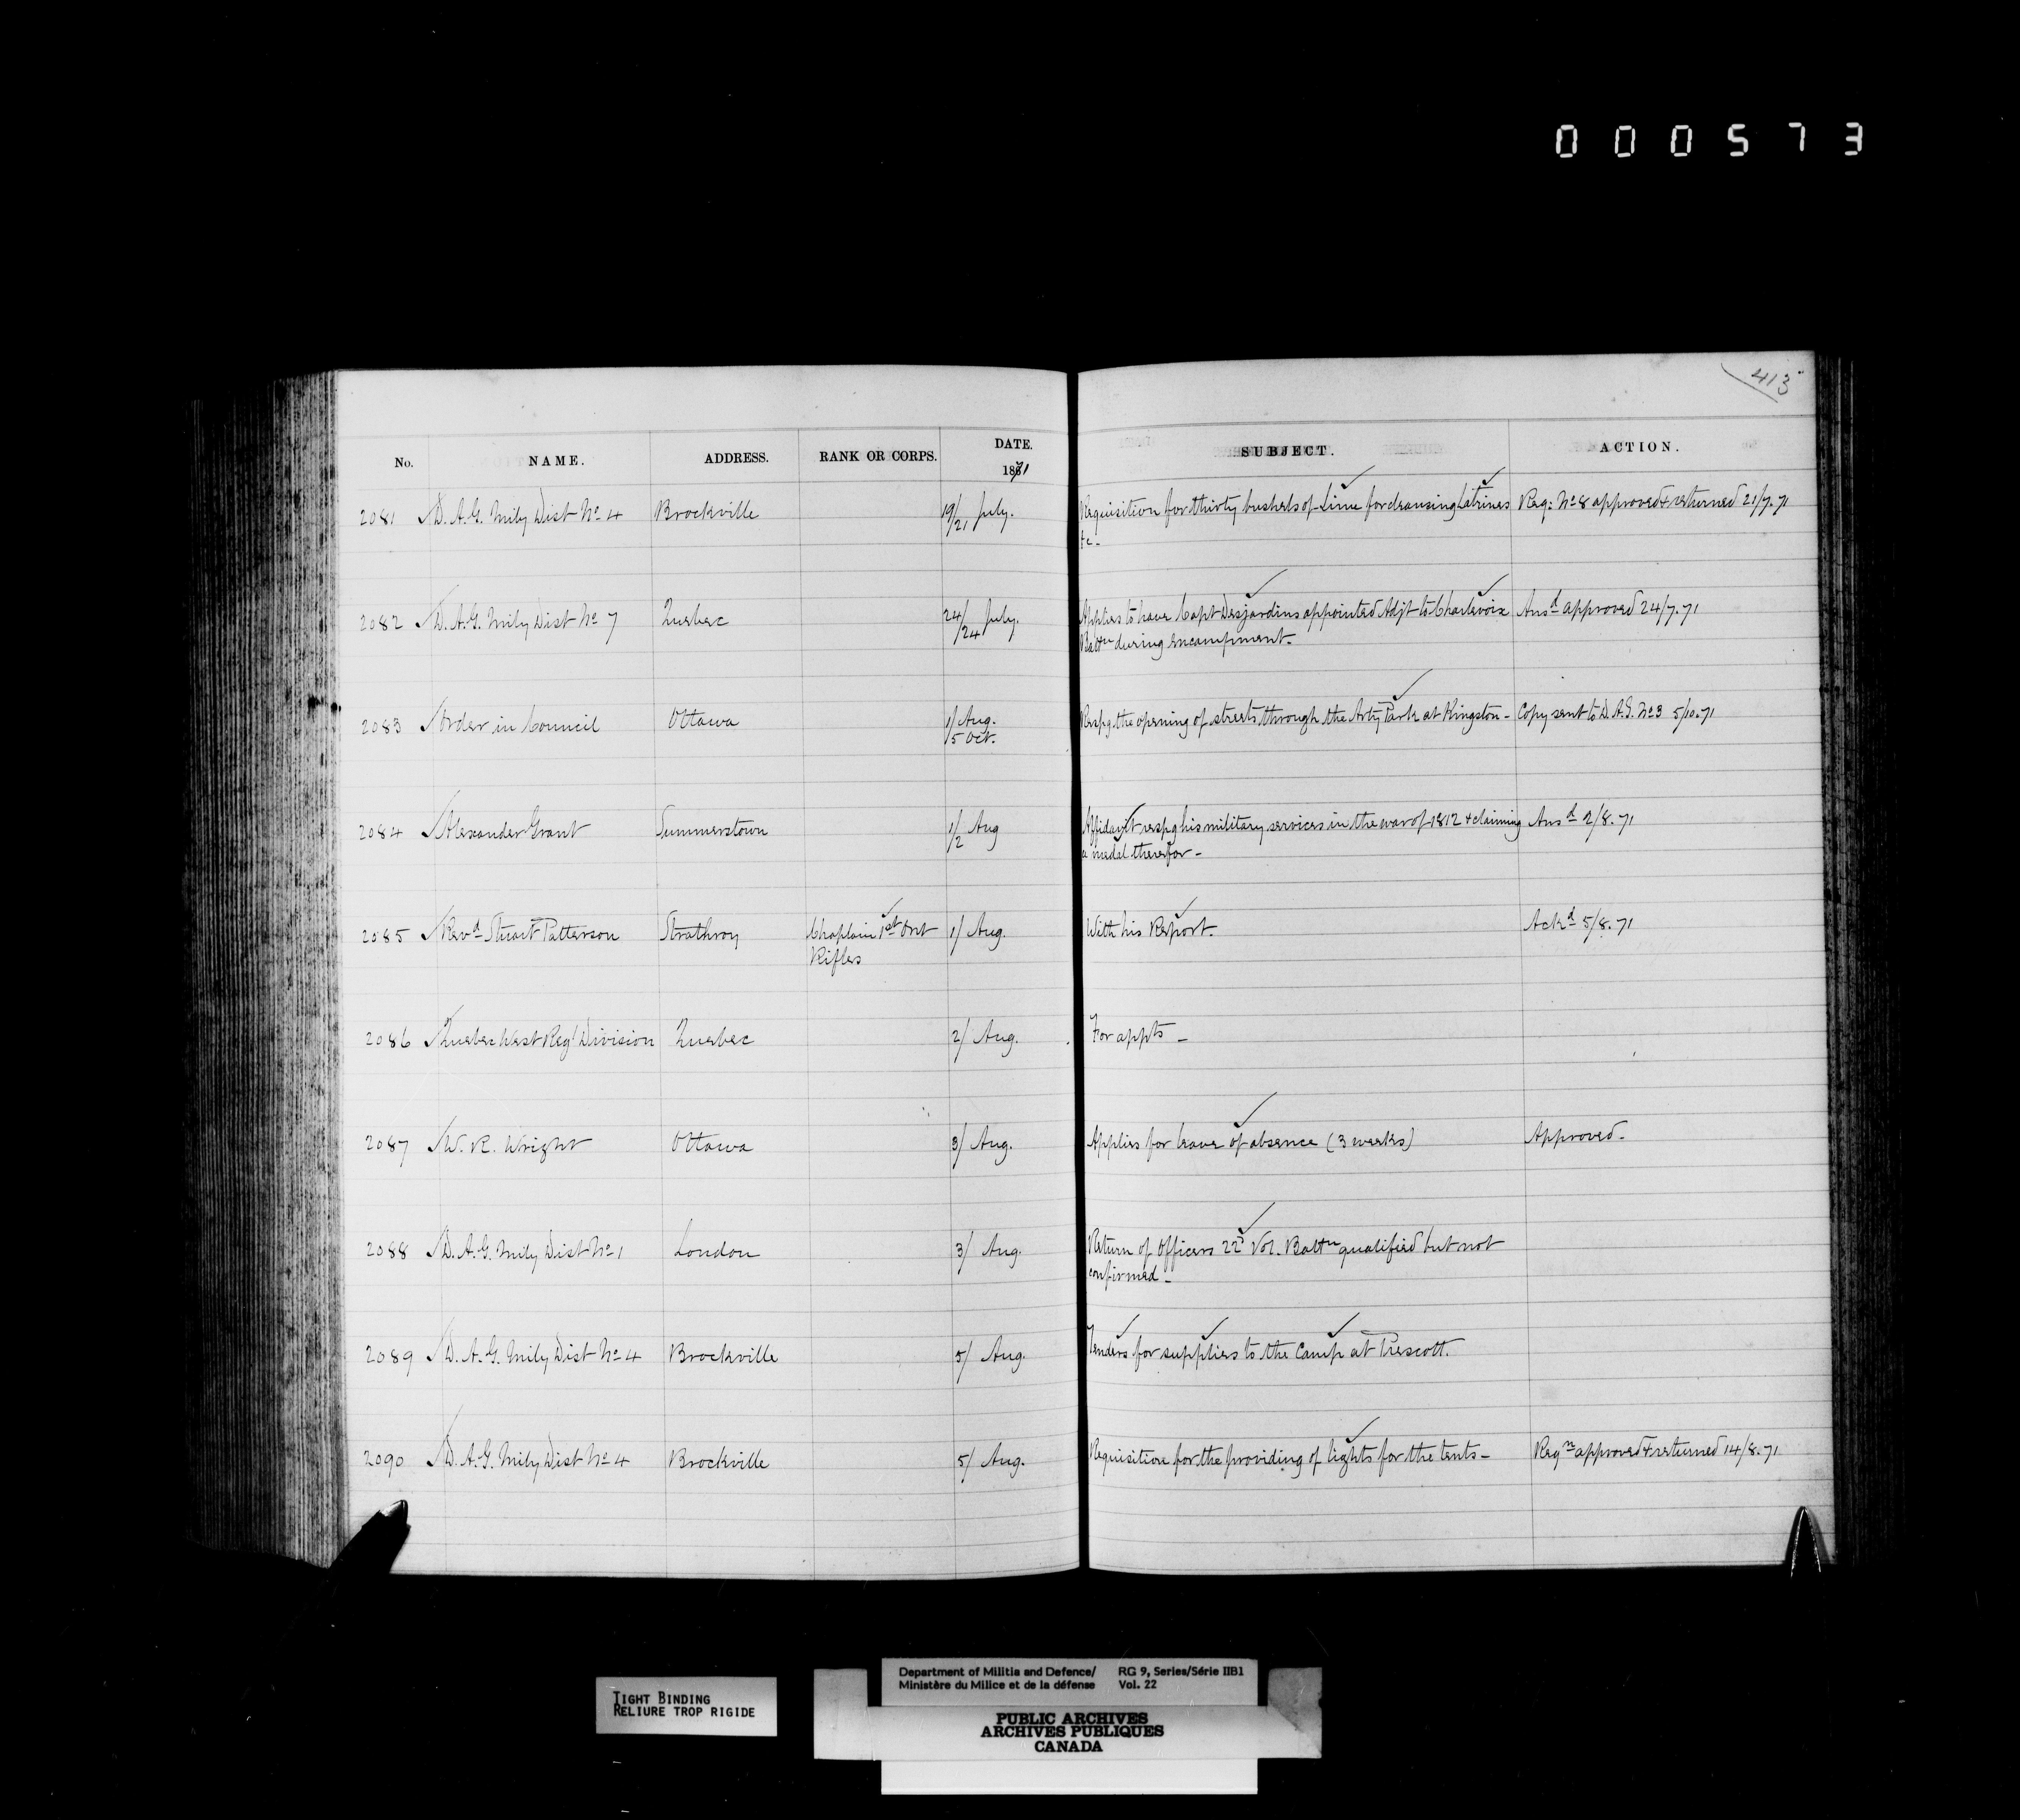 000573
413
No. NAME. ADDRESS. RANK OR CORPS. DATE. 1871 SUBJECT. ACTION.
2081 D. A. G. Mily Dist No. 4 Brockville 19/21 July. Requisition for thirty bushels of Lime for cleansing Latrines Req: No 8 approved & returned 21/7.71
&c-
2082 D. A. G. Mily Dist No 7 Quebec 24/24 July. Applies to have Capt Desjardins appointed Adjt to Charlevoix Ansd approved 24/7.71
Battn during encampment-
2083 Order in Council Ottawa 1/ Aug. Respg. the opening of streets through the Arty Park at Kingston- Copy sent to D. A. G. No 3 5/10.71
/5 Oct.
2084 Alexander Grant Summerstown 1/2 Aug Affidavit respg his military services in the war of 1812 & claiming Ansd 2/8.71
a medal therefor-
2085 Revd Stuart Patterson Strathroy Chaplain 1st Ont 1/ Aug. With his Report. Ackd 5/8.71
Rifles
2086 Quebec West Regl Division Quebec 2/ Aug. For appts-
2087 W. R. Wright Ottawa 3/ Aug. Applies for leave of absence (3 weeks) Approved-
2088 D. A. G. Mily Dist No 1 London 3/ Aug. Return of Officers 22d Vol. Battn qualified but not
confirmed-
2089 D. A. G. Mily Dist No 4 Brockville 5/ Aug. Tenders for supplies to the Camp at Prescott.
2090 D. A. G. Mily Dist No 4 Brockville 5/ Aug. Requisition for the providing of lights for the tents- Reqn approved & returned 14/8.71
TIGHT BINDING
RELIURE TROP RIGIDE
Department of Militia and Defence/ RG 9, Series/Série IIB1
Ministère du Milice et de la défense Vol. 22
PUBLIC ARCHIVES
ARCHIVES PUBLIQUES
CANADA